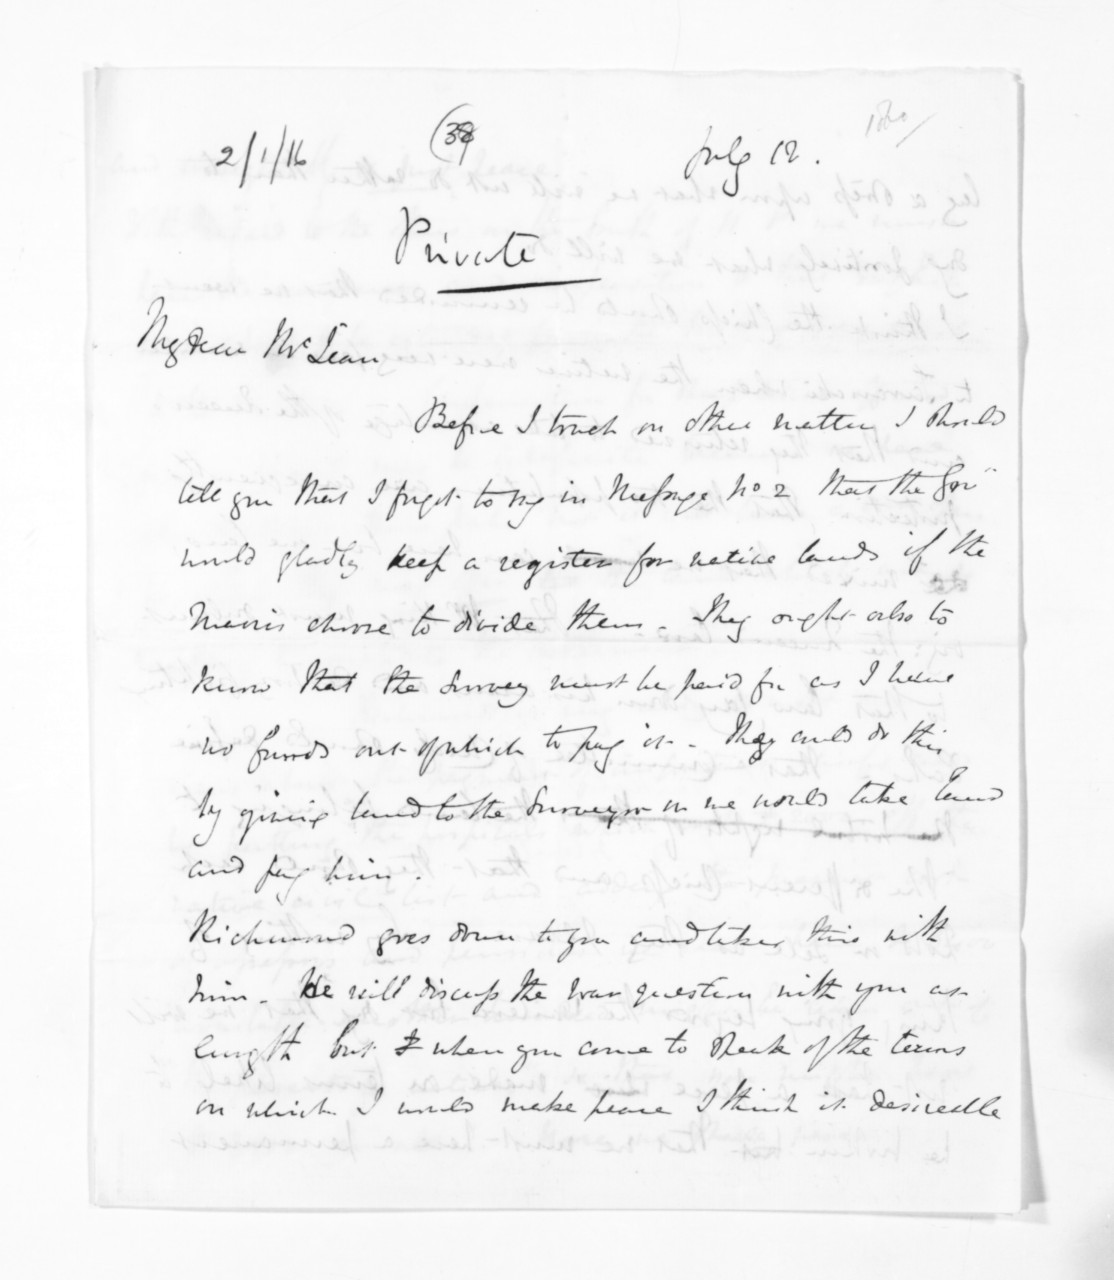 2/1/16
(38)
July 12.
1860/
Private
My dear McLean
Before I touch on other matters I should
tell you that I forgot to say in Message No 2 that the Govt
would gladly keep a register for native lands if the
Maoris choose to divide them. They ought also to
know that the Survey must be paid for as I have
no funds out of which to pay it. They could do this
by giving land to the Surveyor or we would take land
and pay him.
Richmond goes down to you and takes this with
him. He will discuss the war question with you at
length but when you come to speak of the terms
on which I would make peace I think it desireable